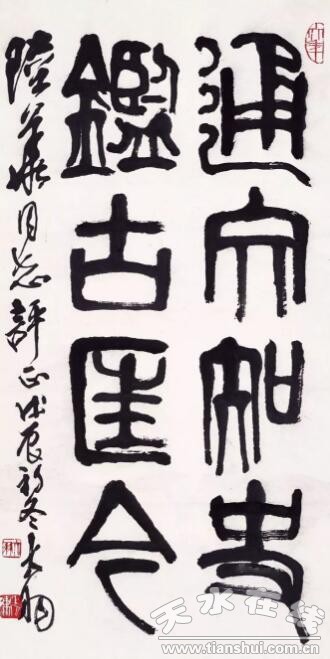 通文知史
鑑古匡今
陸 同志評正戊辰初冬大羽
天水在线
www.tianshui.com.cn